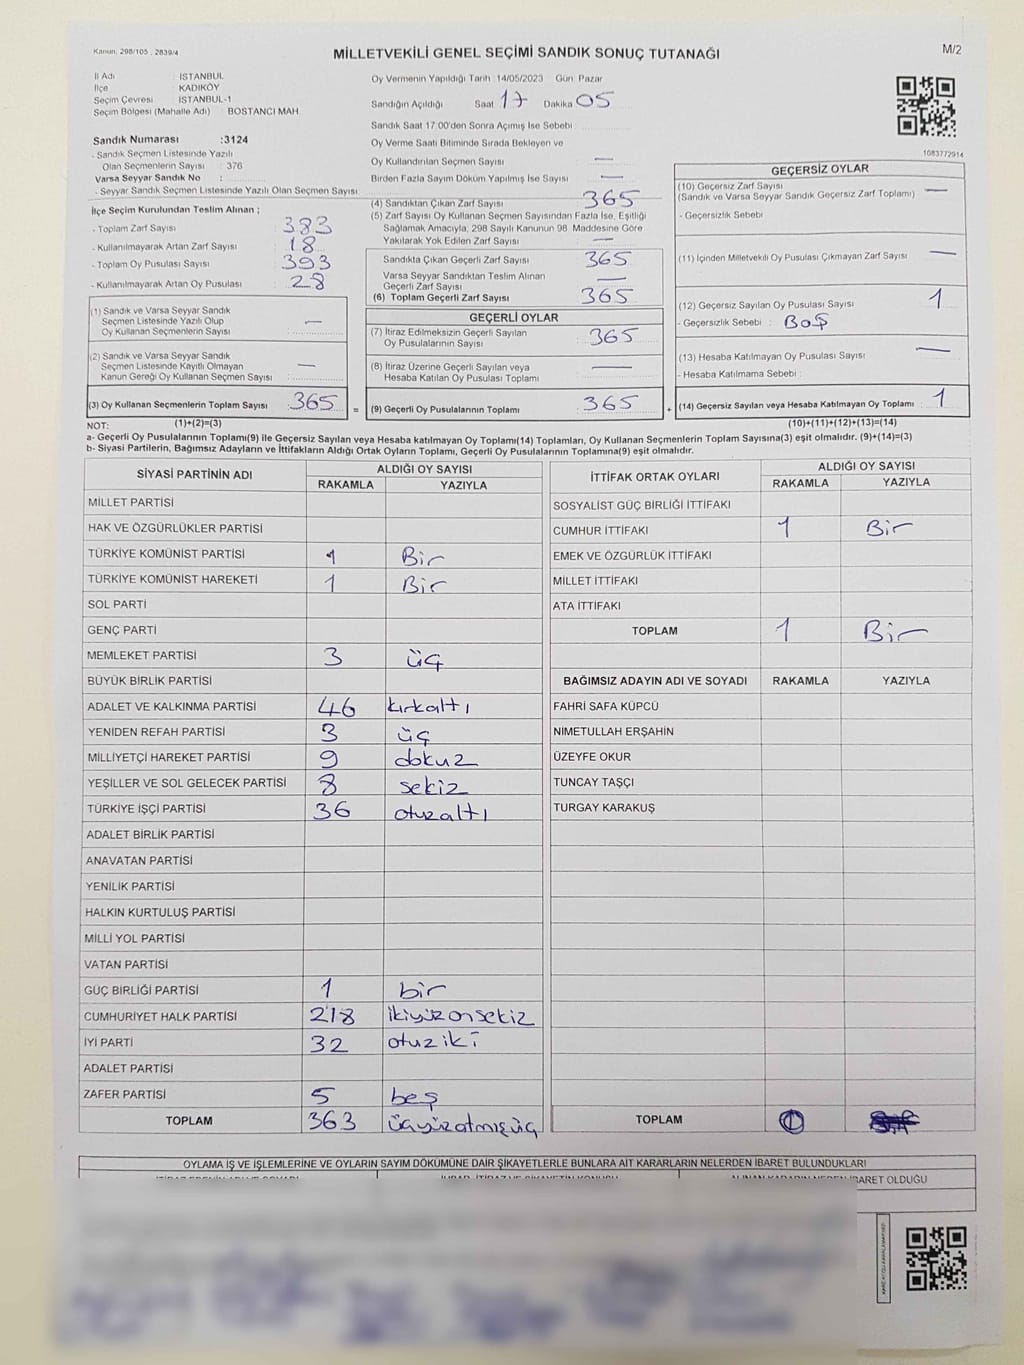 Kanun: 298/105 ; 2839/4
MİLLETVEKİLİ GENEL SEÇİMİ SANDIK SONUÇ TUTANAĞI
M/2
İl Adı : İSTANBUL
İlçe : KADIKÖY
Seçim Çevresi : İSTANBUL-1
Seçim Bölgesi (Mahalle Adı) : BOSTANCI MAH.
Sandık Numarası :3124
- Sandık Seçmen Listesinde Yazılı
Olan Seçmenlerin Sayısı : 376
Varsa Seyyar Sandık No :
- Seyyar Sandık Seçmen Listesinde Yazılı Olan Seçmen Sayısı:
İlçe Seçim Kurulundan Teslim Alınan ;
- Toplam Zarf Sayısı : 383
- Kullanılmayarak Artan Zarf Sayısı : 18
- Toplam Oy Pusulası Sayısı : 393
- Kullanılmayarak Artan Oy Pusulası : 28
(1) Sandık ve Varsa Seyyar Sandık
Seçmen Listesinde Yazılı Olup
Oy Kullanan Seçmenlerin Sayısı : —
(2) Sandık ve Varsa Seyyar Sandık
Seçmen Listesinde Kayıtlı Olmayan
Kanun Gereği Oy Kullanan Seçmen Sayısı : —
(3) Oy Kullanan Seçmenlerin Toplam Sayısı 365
Oy Vermenin Yapıldığı Tarih :14/05/2023 Gün: Pazar
Sandığın Açıldığı Saat 17 Dakika 05
Sandık Saat 17:00'den Sonra Açımış İse Sebebi :
Oy Verme Saati Bitiminde Sırada Bekleyen ve
Oy Kullandırılan Seçmen Sayısı —
Birden Fazla Sayım Döküm Yapılmış İse Sayısı —
(4) Sandıktan Çıkan Zarf Sayısı 365
(5) Zarf Sayısı Oy Kullanan Seçmen Sayısından Fazla İse, Eşitliği
Sağlamak Amacıyla; 298 Sayılı Kanunun 98. Maddesine Göre
Yakılarak Yok Edilen Zarf Sayısı : —
Sandıkta Çıkan Geçerli Zarf Sayısı 365
Varsa Seyyar Sandıktan Teslim Alınan
Geçerli Zarf Sayısı —
(6) Toplam Geçerli Zarf Sayısı 365
GEÇERLİ OYLAR
(7) İtiraz Edilmeksizin Geçerli Sayılan
Oy Pusulalarının Sayısı : 365
(8) İtiraz Üzerine Geçerli Sayılan veya
Hesaba Katılan Oy Pusulası Toplamı —
= (9) Geçerli Oy Pusulalarının Toplamı 365 +
1083772914
GEÇERSİZ OYLAR
(10) Geçersiz Zarf Sayısı
(Sandık ve Varsa Seyyar Sandık Geçersiz Zarf Toplamı) —
- Geçersizlik Sebebi
(11) İçinden Milletvekili Oy Pusulası Çıkmayan Zarf Sayısı —
(12) Geçersiz Sayılan Oy Pusulası Sayısı 1
- Geçersizlik Sebebi : BOŞ
(13) Hesaba Katılmayan Oy Pusulası Sayısı —
- Hesaba Katılmama Sebebi :
(14) Geçersiz Sayılan veya Hesaba Katılmayan Oy Toplamı 1
NOT: (1)+(2)=(3) (10)+(11)+(12)+(13)=(14)
a- Geçerli Oy Pusulalarının Toplamı(9) ile Geçersiz Sayılan veya Hesaba katılmayan Oy Toplamı(14) Toplamları, Oy Kullanan Seçmenlerin Toplam Sayısına(3) eşit olmalıdır. (9)+(14)=(3)
b- Siyasi Partilerin, Bağımsız Adayların ve İttifakların Aldığı Ortak Oyların Toplamı, Geçerli Oy Pusulalarının Toplamına(9) eşit olmalıdır.
SİYASİ PARTİNİN ADI ALDIĞI OY SAYISI
RAKAMLA YAZIYLA
MİLLET PARTİSİ
HAK VE ÖZGÜRLÜKLER PARTİSİ
TÜRKİYE KOMÜNİST PARTİSİ 1 Bir
TÜRKİYE KOMÜNİST HAREKETİ 1 Bir
SOL PARTİ
GENÇ PARTİ
MEMLEKET PARTİSİ 3 üç
BÜYÜK BİRLİK PARTİSİ
ADALET VE KALKINMA PARTİSİ 46 kırkaltı
YENİDEN REFAH PARTİSİ 3 üç
MİLLİYETÇİ HAREKET PARTİSİ 9 dokuz
YEŞİLLER VE SOL GELECEK PARTİSİ 8 sekiz
TÜRKİYE İŞÇİ PARTİSİ 36 otuzaltı
ADALET BİRLİK PARTİSİ
ANAVATAN PARTİSİ
YENİLİK PARTİSİ
HALKIN KURTULUŞ PARTİSİ
MİLLİ YOL PARTİSİ
VATAN PARTİSİ
GÜÇ BİRLİĞİ PARTİSİ 1 bir
CUMHURİYET HALK PARTİSİ 218 ikiyüzonsekiz
İYİ PARTİ 32 otuziki
ADALET PARTİSİ
ZAFER PARTİSİ 5 beş
TOPLAM 363 üçyüzatmışüç
İTTİFAK ORTAK OYLARI ALDIĞI OY SAYISI
RAKAMLA YAZIYLA
SOSYALİST GÜÇ BİRLİĞİ İTTİFAKI
CUMHUR İTTİFAKI 1 Bir
EMEK VE ÖZGÜRLÜK İTTİFAKI
MİLLET İTTİFAKI
ATA İTTİFAKI
TOPLAM 1 Bir
BAĞIMSIZ ADAYIN ADI VE SOYADI RAKAMLA YAZIYLA
FAHRİ SAFA KÜPCÜ
NİMETULLAH ERŞAHİN
ÜZEYFE OKUR
TUNCAY TAŞÇI
TURGAY KARAKUŞ
TOPLAM
OYLAMA İŞ VE İŞLEMLERİNE VE OYLARIN SAYIM DÖKÜMÜNE DAİR ŞİKAYETLERLE BUNLARA AİT KARARLARIN NELERDEN İBARET BULUNDUKLARI
İBARET OLDUĞU